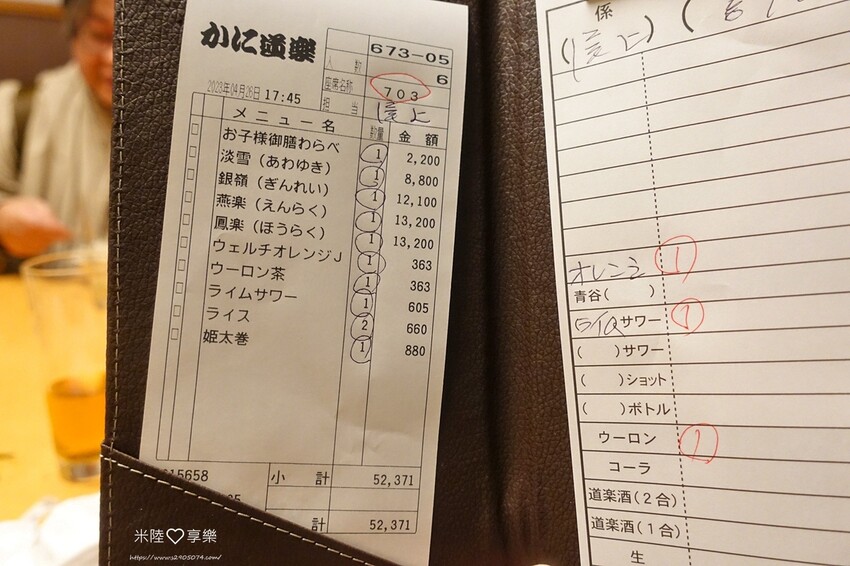 かに道楽
673-05
人数 6
座席名称 703
担当
2023年04月26日 17:45
メニュー名 数量 金額
お子様御膳わらべ 1 2,200
淡雪(あわゆき) 1 8,800
銀嶺(ぎんれい) 1 12,100
燕楽(えんらく) 1 13,200
鳳楽(ほうらく) 1 13,200
ウェルチオレンジJ 1 363
ウーロン茶 1 363
ライムサワー 1 605
ライス 2 660
姫太巻 1 880
15658 小計 52,371
05
計 52,371
係
オレンジ 1
青谷( )
サワー 1
( )サワー
( )ショット
( )ボトル
ウーロン 1
コーラ
道楽酒(2合)
道楽酒(1合)
生
米陸♡享樂
https://www.s2905074.com/